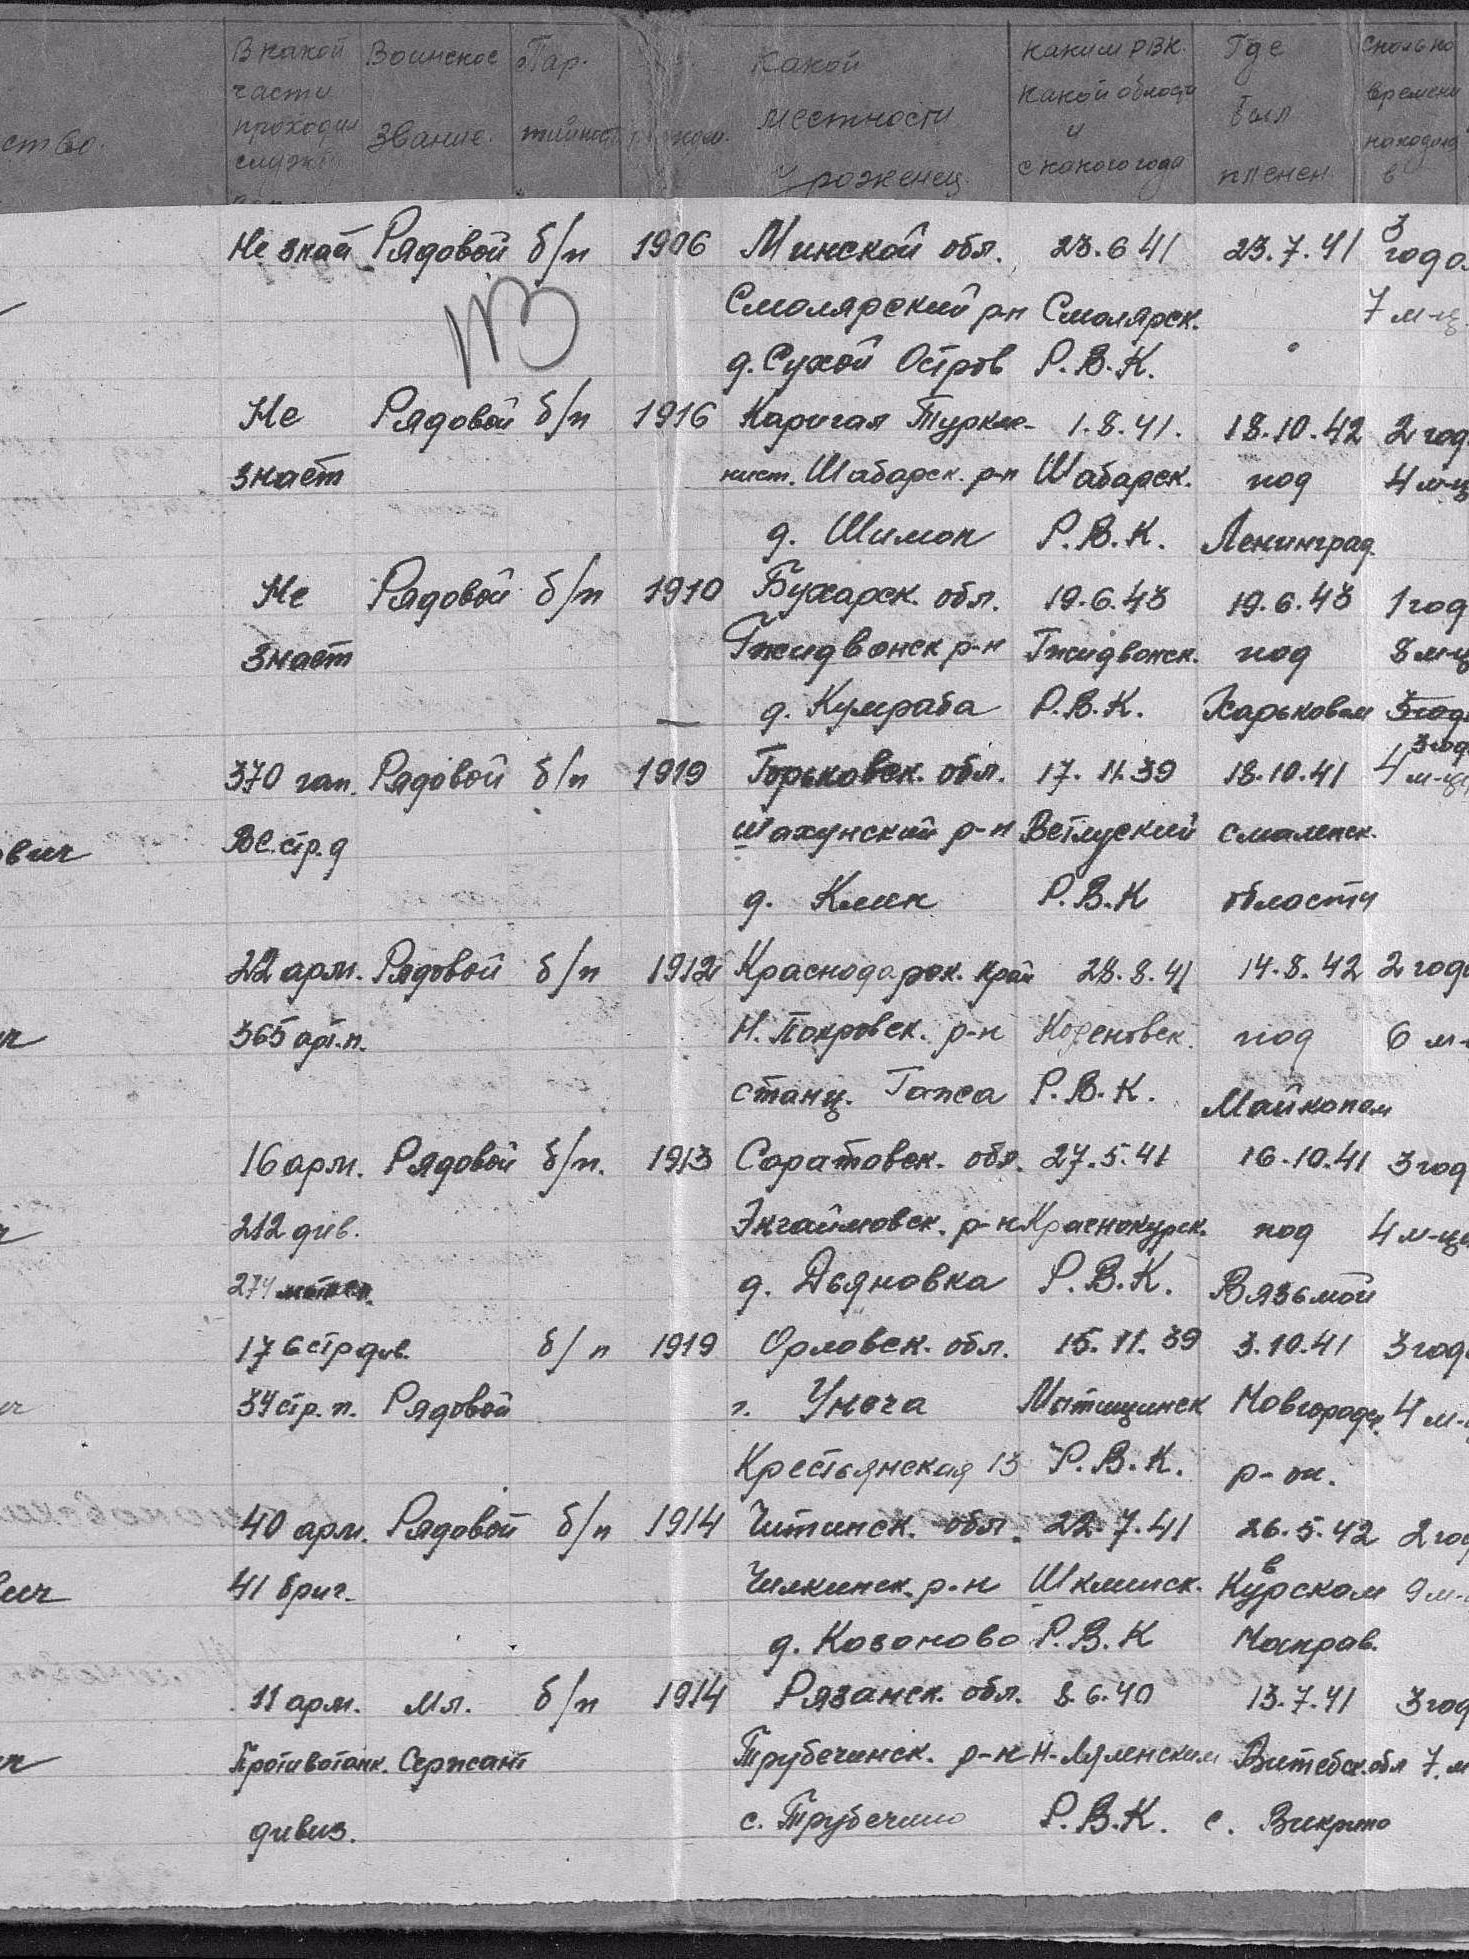 В какой Воинское Пар- Какой каким РВК. Где Сколько
части какой области времени
проходил местности и был находился
ство. службу звание. тийность рожден. уроженец с какого года пленен в
Не знай Рядовой б/п 1906 Минской обл. 23.6 41 23.7.41 3 годо
Смолярский р-н Смолярск. 7 м-ц.
д. Сухой Остров Р.В.К.
Не Рядовой б/п 1916 Каригал Туркме- 1.8.41. 18.10.42 2 год
знает нист. Шабарск. р-н Шабарск. под 4 м-ц
д. Шимон Р.В.К. Ленинград
Не Рядовой б/п 1910 Бухарск. обл. 19.6.43 19.6.43 1 год
знает Гжидвонск р-н Гжидвонск. под 8 м-ц
д. Кумраба Р.В.К. Харьковом 3 год
370 гап. Рядовой б/п 1919 Горьковск. обл. 17.11.39 18.10.41 3 год 4 м-ц
вич ВС.стр.д Шахунский р-н Ветлуский смоленск.
д. Клин Р.В.К области
22 арм. Рядовой б/п 1912 Краснодарск. край 28.8.41 14.8.42 2 год
ич 365 арт.п. Н. Покровск. р-н Кореновск. под 6 м-
станц. Р.В.К. Майкопом
16 арм. Рядовой б/п. 1913 Саратовск. обл. 27.5.41 16.10.41 3 год
212 див. р-н Краснокурск. под 4 м-ц
274 д. Дьяновка Р.В.К. Вязьмой
176 стр див. б/п 1919 Орловск. обл. 15.11.39 3.10.41 3 год
ич 34 стр. п. Рядовой г. Унеча Мытищинск Новгородс. 4 м-
Крестьянская 13 Р.В.К. р-он.
40 арм. Рядовой б/п 1914 Читинск. обл. 22.7.41 26.5.42 2 го
вич 41 бриг. Чилкинск. р-н Шклинск. в Курском 9 м-
д. Козоново Р.В.К Направ.
11 арм. Мл. б/п 1914 Рязанск. обл. 8.6.40 13.7.41 3 год
ич Противотанк. Сержант Трубечинск. р-н Н-Ляленским Витебск.обл 7 м
дивиз. с. Трубечино Р.В.К. с. Викрино